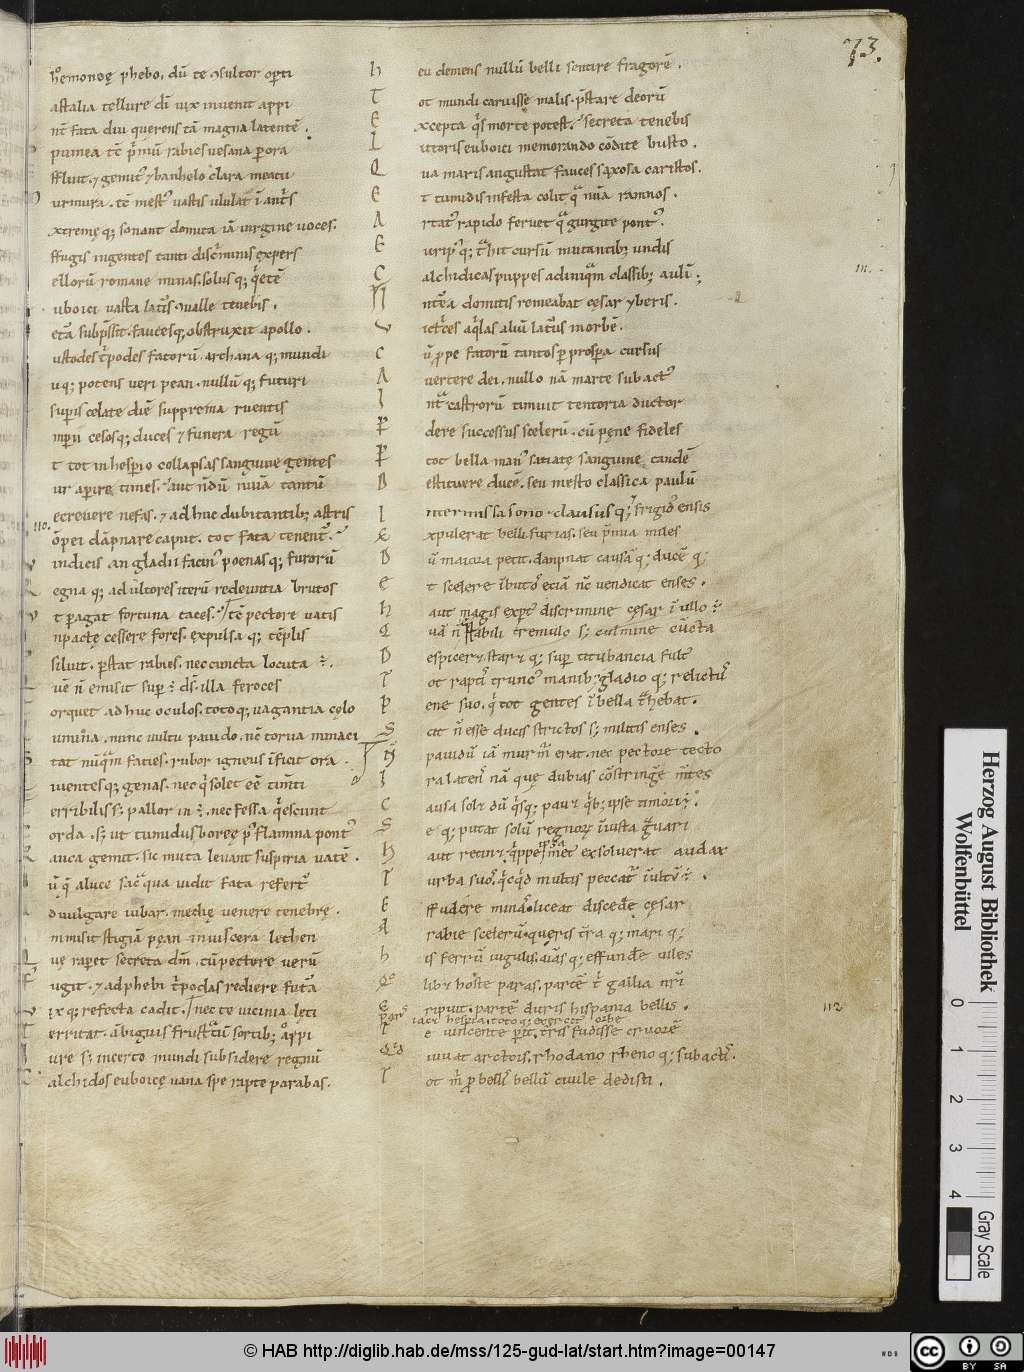 73.
hoemonoę phebo, dū te ɔsultor opti
astalia tellure dī uix inuenit appi
nt fata diu querens tā magna latentē.
pumea tc prīmū rabies uesana p ora
fflint. & gemit' & hanhelo clara meatu
urmura. tc mest' uastis ululat' ī antris
xtremęq; sonant domita iā uirgine uoces.
ffugis ingentes tanti discriminis expers
ellorū romane minas. solusq; qetē
uboici uasta lateris ualle tenebis.
etā subpssit. faucesq; obstruxit apollo.
ustodes tpodes fatorū. archanaq; mundi
uq; potens ueri pean. nullūq; futuri
supis celate diē supprema ruentis
mpii cesosq; duces & funera regū
t tot in hespio collapsas sanguine gentes
ur apire times. aut nōdū numina tantū
ecreuere nefas. & adhuc dubitantib; astris
110.
ōpei dāpnare caput. tot fata tenent'.
uindicis an gladii facin' poenasq; furorū
egnaq; ad ultores iterū redeuntia brutos
t pagat fortuna taces. tc pectore uatis
npactę cessere fores. expulsaq; teplis
siluit. pstat rabies. nec cuncta locuta ē.
uē ñ emisit sup ē ds. illa feroces
orquet adhuc oculos. totoq; uagantia cęlo
umina. nunc uultu pauido. nc torua minaci
tat nūqm facies. rubor igneus īficit ora.
iuentesq; genas. nec q solet eē timti
erribilis s; pallor in ē. nec fessa qescunt
orda. s; ut tumidus boreę p' flamina pont'
auca gemit. sic muta leuant suspiria uatē.
ū q a luce sac qua uidit fata refert'
d uulgare iubar. medię uenere tenebrę.
mmisit stigiā pęan in uiscera lethen
uę rapet secreta dm. cū pectore uerū
ugit. & ad phebi tpodas rediere futa
ixq; refecta cadit. nec te uicinia leti
erritat. ābiguis frustatū sortib; appi
ure s; incerto mundi subsidere regnū
alchidos euboicę uana spe rapte parabas.
h eu demens nullū belli sentire fragorē.
T ot mundi caruisse malis. pstare deorū
E xcepta qs morte potest. secreta tenebis
L ittoris euboici memorando cōdite busto.
Q ua maris angustat fauces saxosa caristos.
E t tumidis infesta colit q nūa ramnos.
A rtat' rapido feruet q gurgite pont'.
E urip'q; thit cursū mutantib; undis
C alchidicas puppes ad iniqm classib; aulī.
111.
N ntea domitis remeabat cęsar yberis.
V ictces aqlas aliū latur' ī orbē.
C ū ppe fatorū tantos p prospa cursus
A uertere dei. nullo nā marte subact'
I nt castrorū timuit tentoria ductor
P dere successus scelerū. cū pęne fideles
P tot bella man' satiatę sanguine tandē
D estituere ducē. seu mesto classica paulū
I ntermissa sono. claususq; frigid' ensis
E xpulerat belli furias. seu pmia miles
D ū maiora petit. dampnat causāq; ducēq;
E t scelere ībutos eciā nc uendicat enses.
h aut magis expt' discrimine cęsar ī ullo ē
Q uā ñ stabili tremulo s; culmine cūcta
D espiceret. staretq; sup titubantia fult'
T ot raptis trunc' manib; gladioq; relict'
P ene suo. q tot gentes ī bella thebat.
S cit ñ esse ducis strictos s; militis enses.
N pauidū iā murmur erat. nec pectore tecto
I ra latens. nā quę dubias cōstringe mtes
C ausa solet. dū qsq; pauet qb; ipse timori ē.
S eq; putat solū regnorū īiusta guari
h aut retinet. qppe metus exsoluerat audax
T urba suos. qcqd multis peccatur īultū ē.
E ffudere minas. liceat discede cęsar
A rabie scelerū. queris traq; mariq;
h is ferrū iugulis. aīasq; effunde uiles
Q lib& hoste paras. partē t gallia nri
112.
E ripuit. partē duris hispania bellis.
pars iacet hespia. totoq; exercit' orbe
T e uincente pit. tris fudisse cruorē
Qd iuuat arctois. rhodano rhenoq; subactis.
T ot m p bellis bellū ciuile dedisti.
Herzog August Bibliothek
Wolfenbüttel
0 1 2 3 4
Gray Scale
© HAB http://diglib.hab.de/mss/125-gud-lat/start.htm?image=00147
WDB
cc BY SA